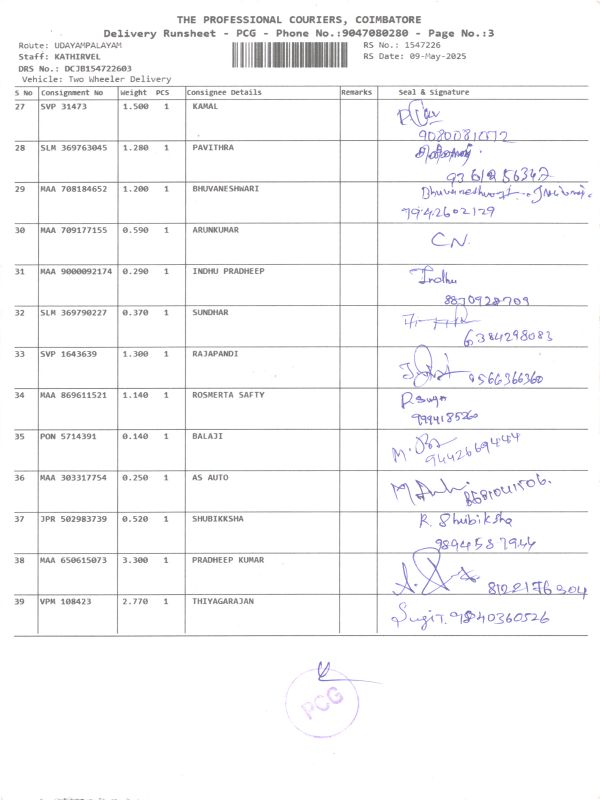 THE PROFESSIONAL COURIERS, COIMBATORE
Delivery Runsheet - PCG - Phone No.:9047080280 - Page No.:3
Route: UDAYAMPALAYAM RS No.: 1547226
Staff: KATHIRVEL RS Date: 09-May-2025
DRS No.: DCJB154722603
Vehicle: Two Wheeler Delivery
S No Consignment No Weight PCS Consignee Details Remarks Seal & Signature
27 SVP 31473 1.500 1 KAMAL
28 SLM 369763045 1.280 1 PAVITHRA
29 MAA 708184652 1.200 1 BHUVANESHWARI Bhuvaneshwari
7942602129
30 MAA 709177155 0.590 1 ARUNKUMAR C.N.
31 MAA 9000092174 0.290 1 INDHU PRADHEEP Indhu
8870928709
32 SLM 369790227 0.370 1 SUNDHAR
6384298083
33 SVP 1643639 1.300 1 RAJAPANDI
9566366360
34 MAA 869611521 1.140 1 ROSMERTA SAFTY
9994185260
35 PON 5714391 0.140 1 BALAJI
9442669444
36 MAA 303317754 0.250 1 AS AUTO
37 JPR 502983739 0.520 1 SHUBIKKSHA K. Shubiksha
9894587944
38 MAA 650615073 3.300 1 PRADHEEP KUMAR
8122176304
39 VPM 108423 2.770 1 THIYAGARAJAN Sugi T. 9840360526
PCG